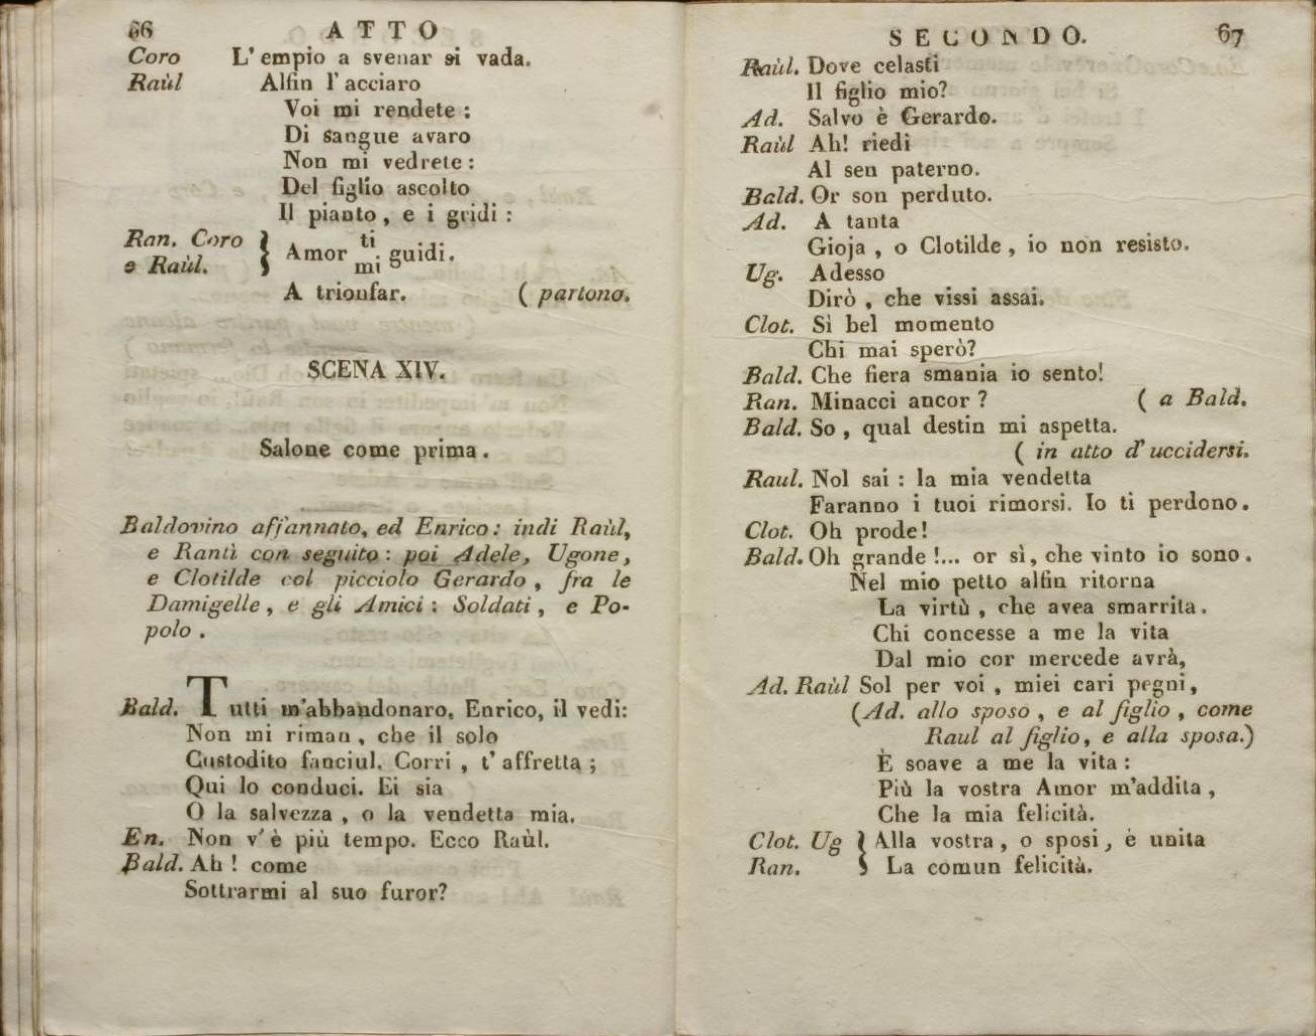 66 ATTO
Coro L' empio a svenar si vada.
Raùl Alfin l' acciaro
Voi mi rendete :
Di sangue avaro
Non mi vedrete :
Del figlio ascolto
Il pianto , e i gridi :
Ran. Coro e Raùl. } Amor ti mi guidi.
A trionfar. ( partono.
SCENA XIV.
Salone come prima .
Baldovino affannato, ed Enrico : indi Raùl,
e Rantì con seguito : poi Adele, Ugone,
e Clotilde col picciolo Gerardo , fra le
Damigelle , e gli Amici : Soldati , e Po-
polo .
Bald. Tutti m'abbandonaro, Enrico, il vedi:
Non mi riman , che il solo
Custodito fanciul. Corri , t' affretta ;
Qui lo conduci. Ei sia
O la salvezza , o la vendetta mia.
En. Non v' è più tempo. Ecco Raùl.
Bald. Ah ! come
Sottrarmi al suo furor?
SECONDO. 67
Raùl. Dove celasti
Il figlio mio?
Ad. Salvo è Gerardo.
Raùl Ah! riedi
Al sen paterno.
Bald. Or son perduto.
Ad. A tanta
Gioja , o Clotilde , io non resisto.
Ug. Adesso
Dirò , che vissi assai.
Clot. Sì bel momento
Chi mai sperò?
Bald. Che fiera smania io sento!
Ran. Minacci ancor ? ( a Bald.
Bald. So , qual destin mi aspetta.
( in atto d' uccidersi.
Raul. Nol sai : la mia vendetta
Faranno i tuoi rimorsi. Io ti perdono.
Clot. Oh prode!
Bald. Oh grande !... or sì, che vinto io sono.
Nel mio petto alfin ritorna
La virtù , che avea smarrita.
Chi concesse a me la vita
Dal mio cor mercede avrà,
Ad. Raùl Sol per voi , miei cari pegni,
(Ad. allo sposo , e al figlio , come
Raul al figlio, e alla sposa.)
È soave a me la vita :
Più la vostra Amor m'addita ,
Che la mia felicità.
Clot. Ug } Alla vostra , o sposi , è unita
Ran. La comun felicità.